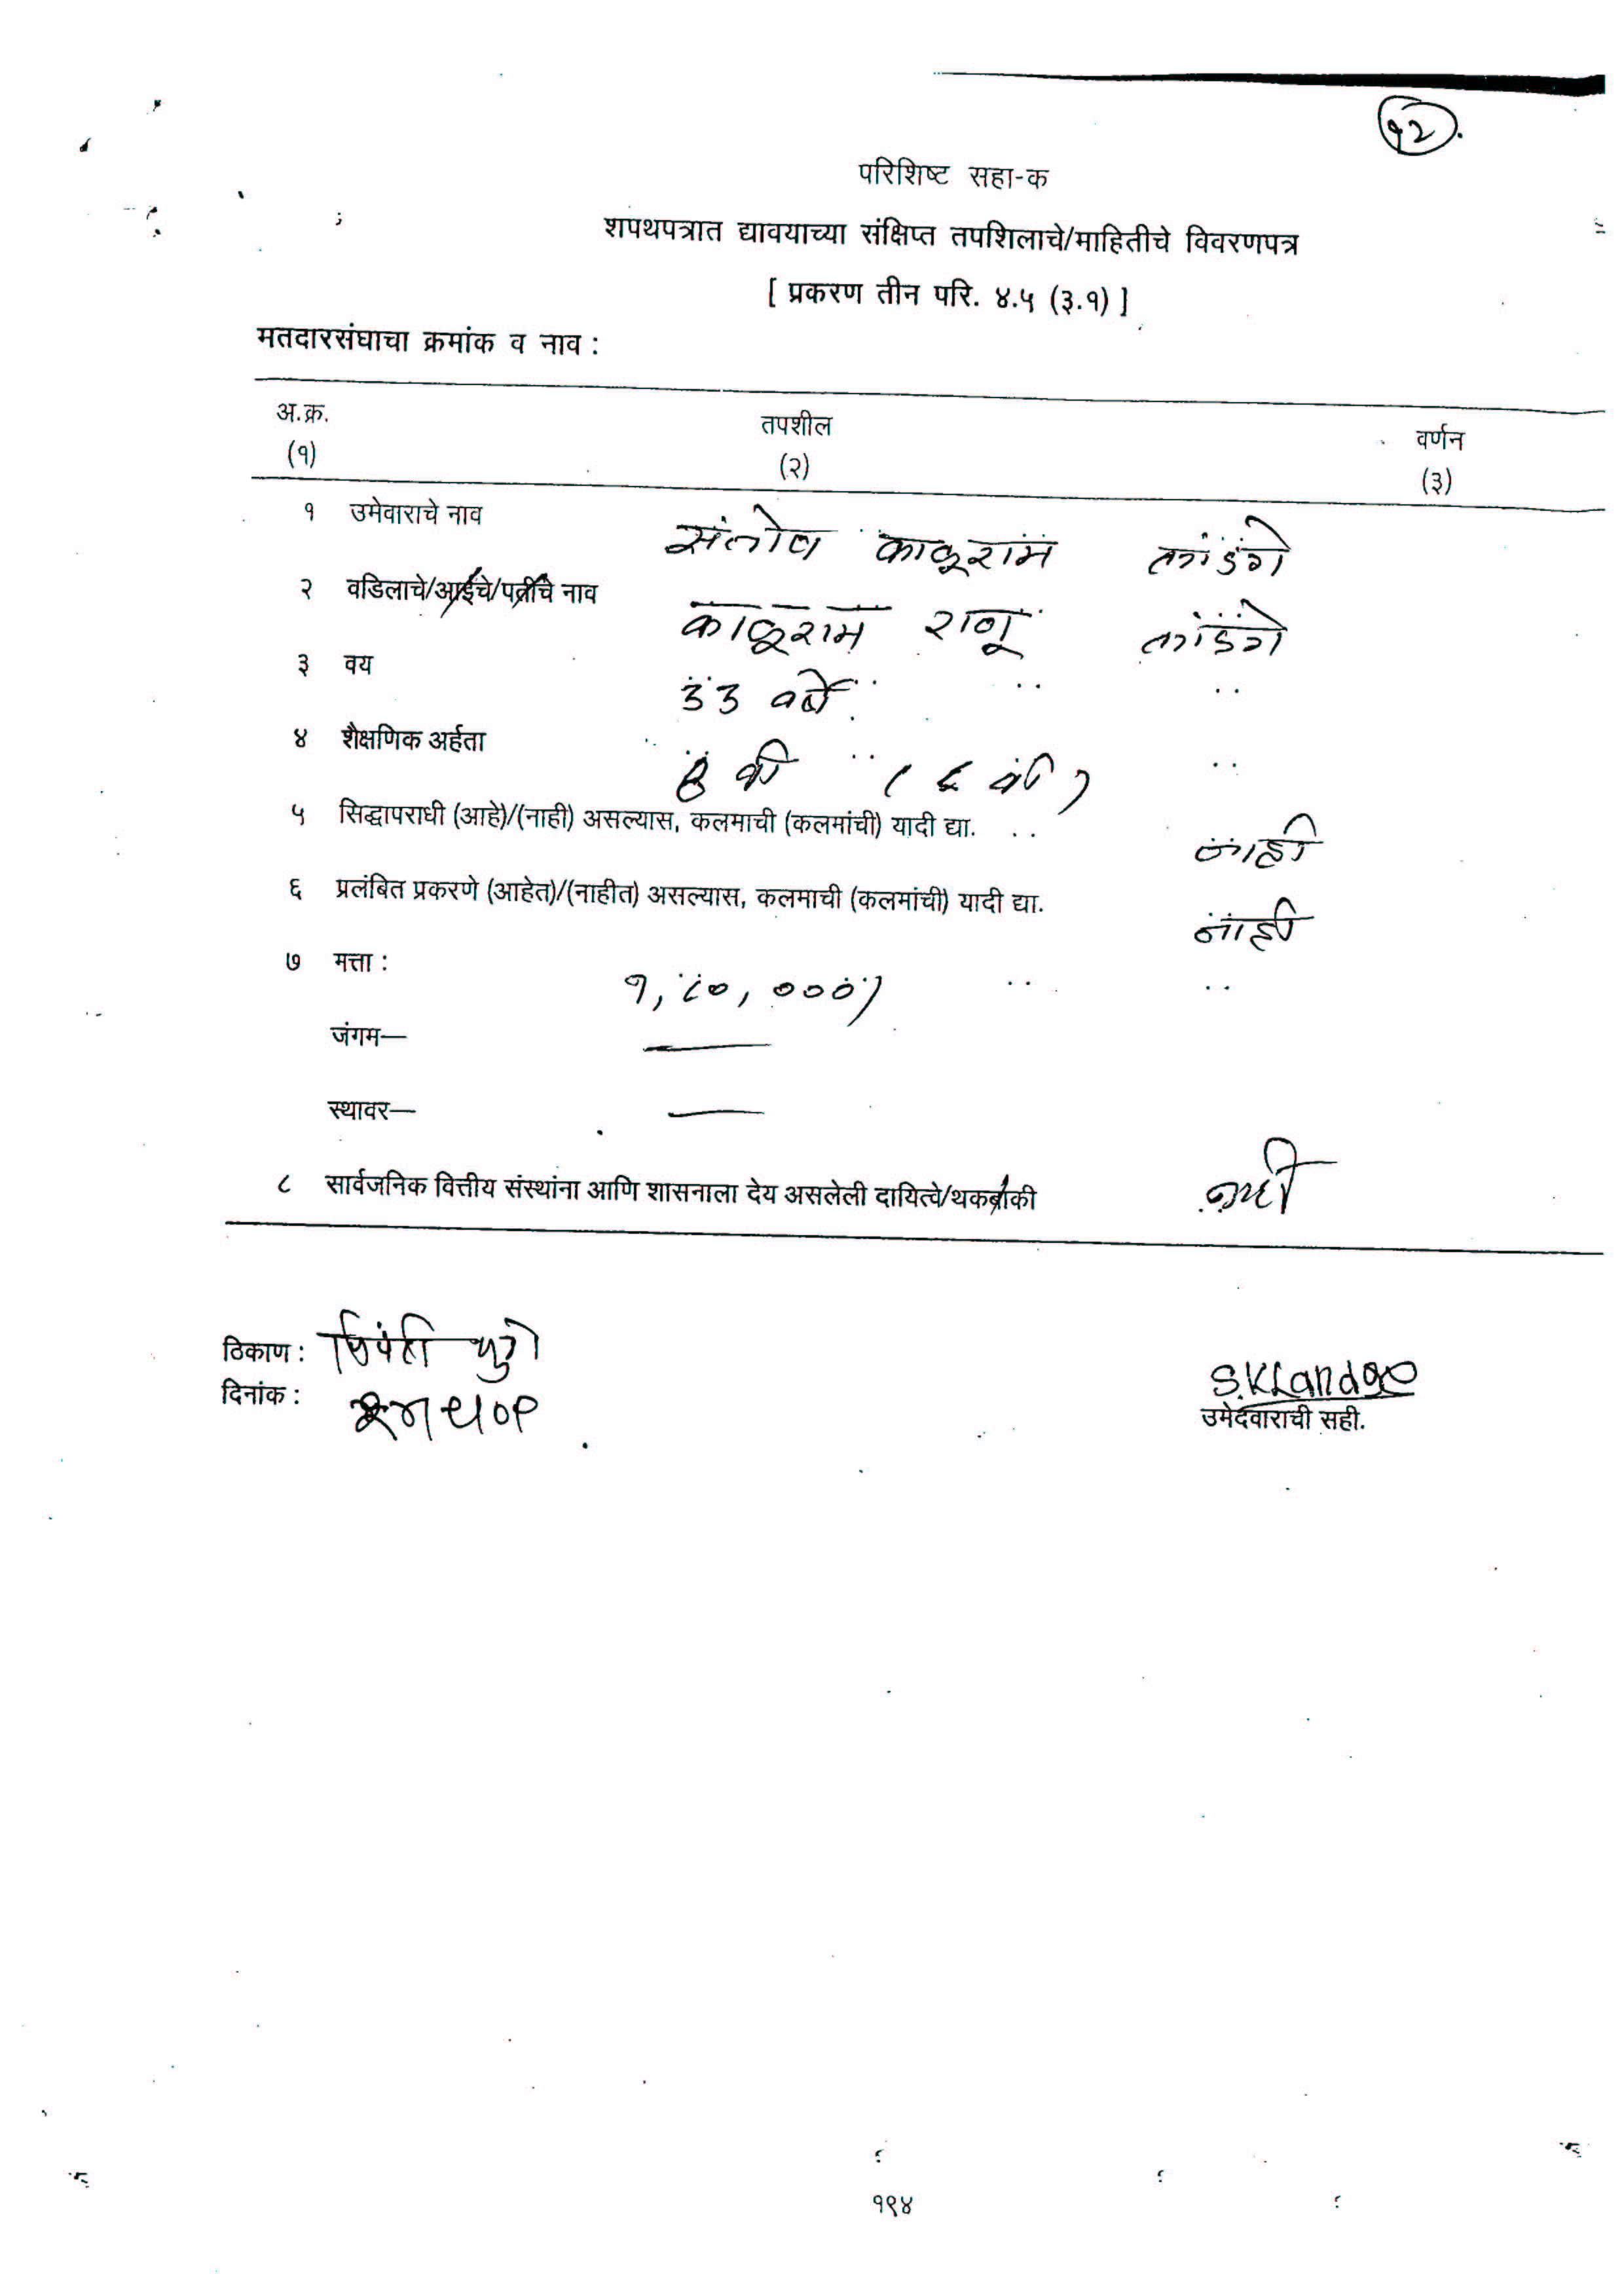 १२
परिशिष्ट सहा-क
शपथपत्रात द्यावयाच्या संक्षिप्त तपशिलाचे/माहितीचे विवरणपत्र
[ प्रकरण तीन परि. ४.५ (३.१) ]
मतदारसंघाचा क्रमांक व नाव :
अ.क्र. तपशील वर्णन
(१) (२) (३)
१ उमेवाराचे नाव संतोष काळूराम लांडगे
२ वडिलाचे/आईचे/पतीचे नाव काळूराम राणू लांडगे
३ वय 33 वर्षे
४ शैक्षणिक अर्हता 8 वी
५ सिद्धापराधी (आहे)/(नाही) असल्यास, कलमाची (कलमांची) यादी द्या. .. नाही
६ प्रलंबित प्रकरणे (आहेत)/(नाहीत) असल्यास, कलमाची (कलमांची) यादी द्या. नाही
७ मत्ता : १,८०,०००/
जंगम—
स्थावर—
८ सार्वजनिक वित्तीय संस्थांना आणि शासनाला देय असलेली दायित्वे/थकबाकी नाही
ठिकाण :
दिनांक :
S.KLandge
उमेदवाराची सही.
१९४